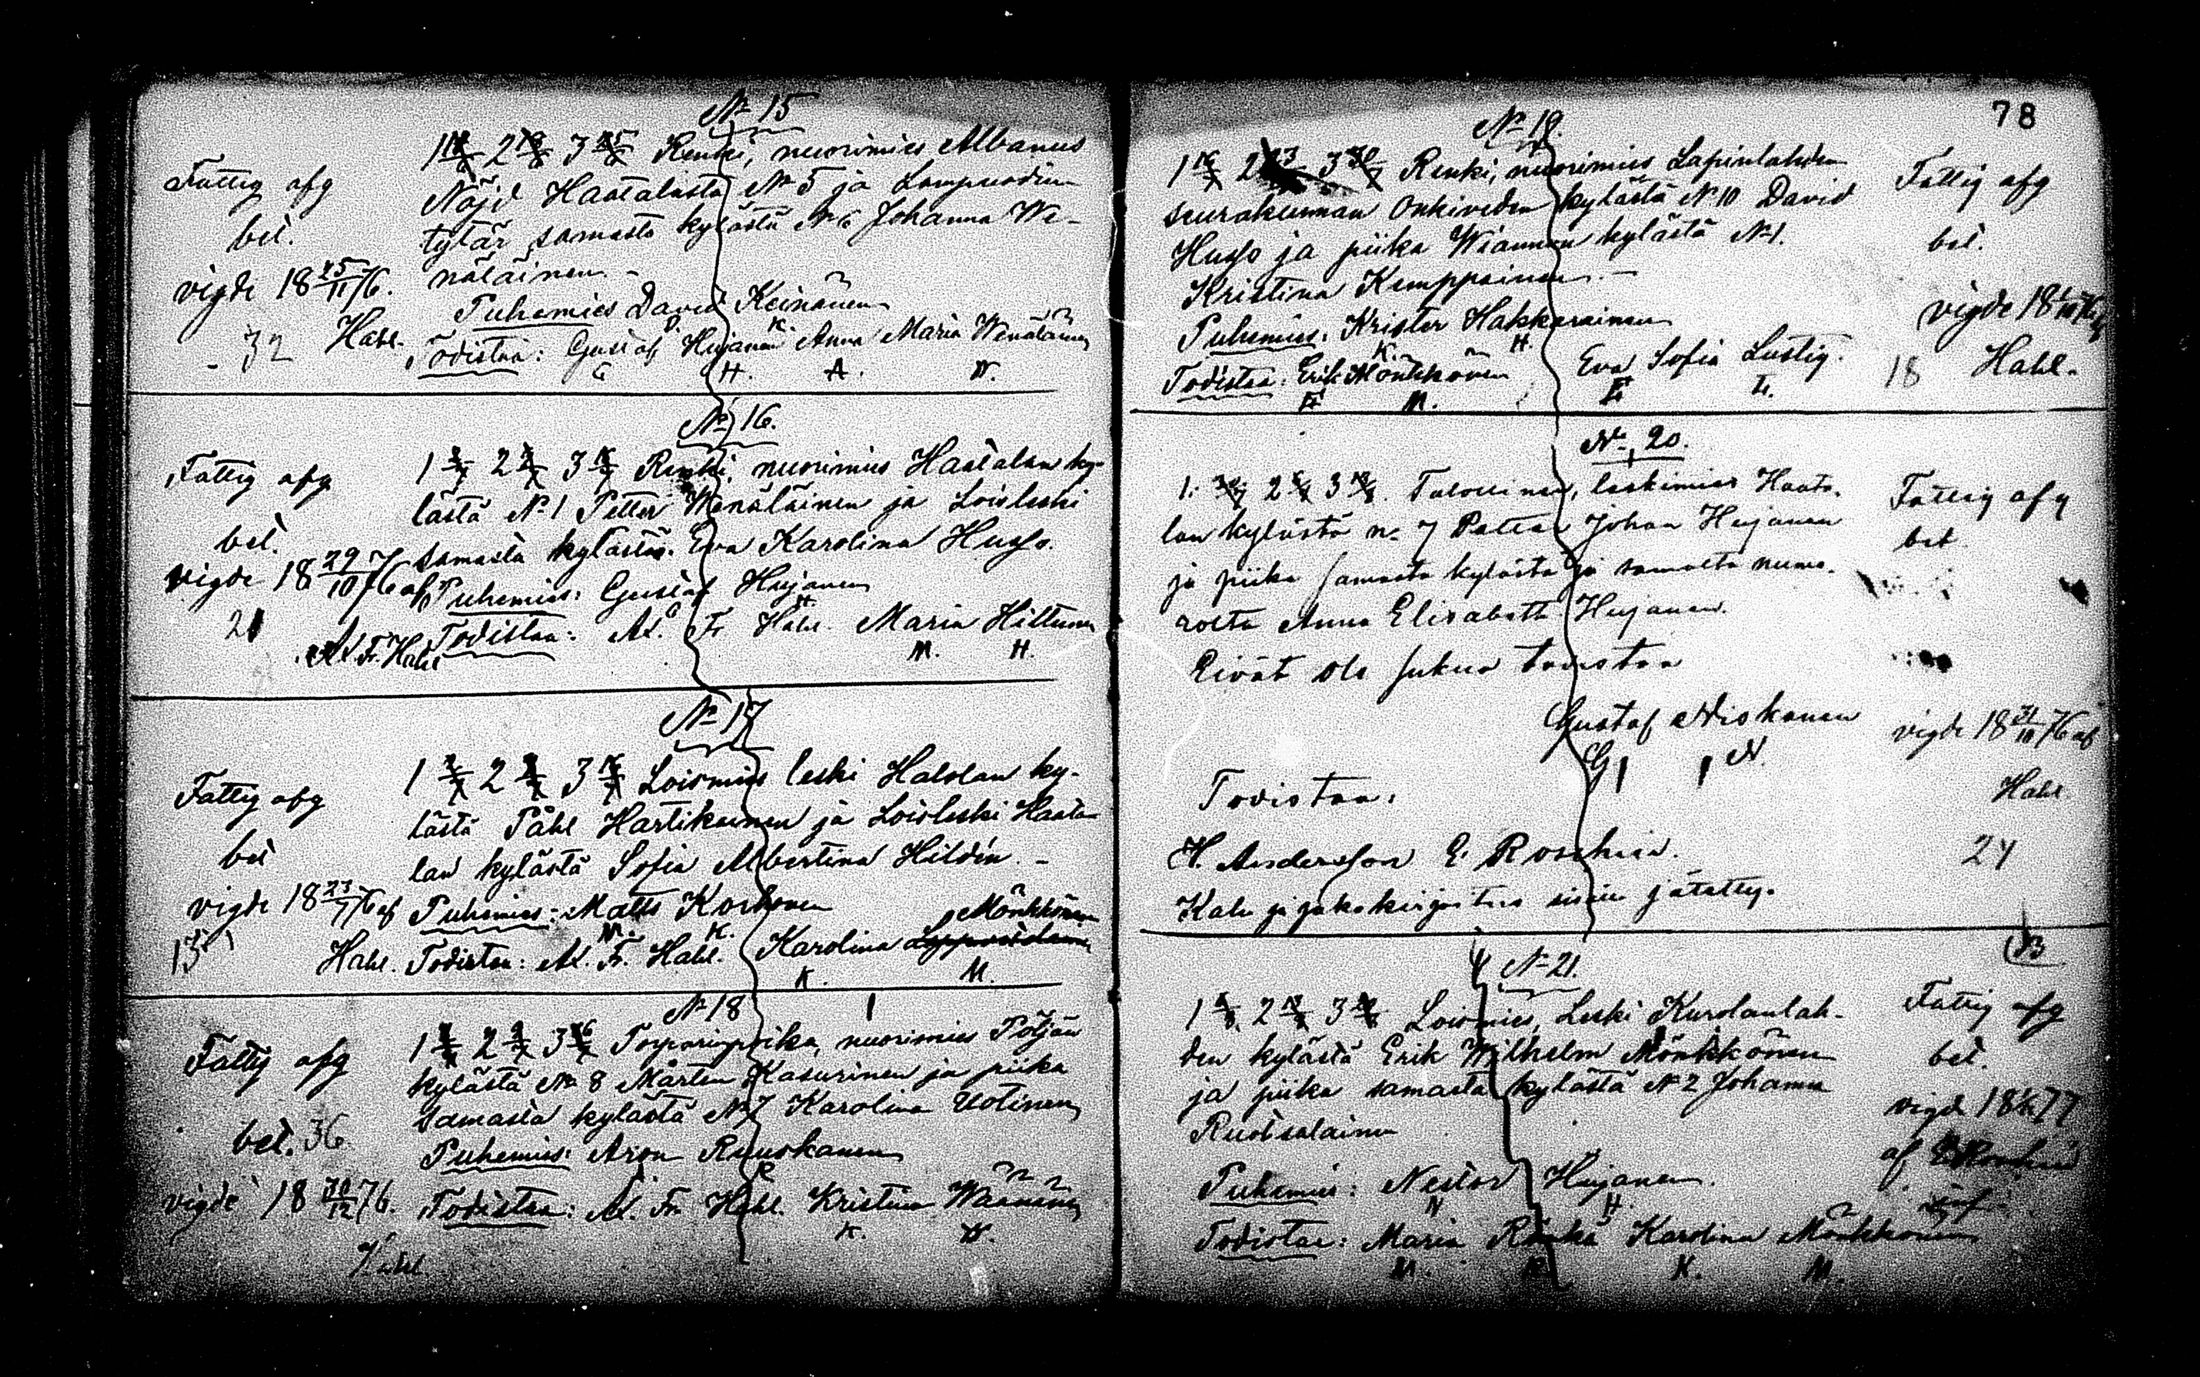 No 15
Fattig afg
bet.
vigde 18 25/11 76.
32 Hahl.
1 2 3 Renki, nuorimies Albanus
Nöjd Haatalasta No 5 ja Lampuodin
tytär samasta kylästä No 6 Johanna We-
näläinen. -
Puhemies David Keinänen
Todistaa: Gustaf Hujanen Anna Maria Wenäläinen
G H. A. W.
No 16.
Fattig afg
bet.
vigde 18 29/10 76 af
21
Al. Fr. Hahl
1 2 3 Renki, nuorimies Haatalan ky-
lästä No 1 Petter Wenäläinen ja Loisleski
samasta kylästä. Eva Karolina Huss.
Puhemies: Gustaf Hujanen
G H
Todistaa: Al. Fr. Hahl. Maria Hiltunen
M. H.
No 17
Fattig afg
bet
vigde 18 23/7 76 af
13 Hahl.
1 2 3 Loismies leski Halolan ky-
lästä Påhl Hartikainen ja Loisleski Haata-
lan kylästä Sofia Albertina Hildin. -
Puhemies: Matts Korhonen
M. K.
Mönkkönen
Todistaa: Al. Fr. Hahl. Karolina
K. M.
No 18
Fattig afg
bet. 36
vigde 18 30/12 76.
Hahl.
1 2 3 Torparinpoika, nuorimies Pöljän
kylästä No 8 Mårten Kasurinen ja piika
samasta kylästä No 7 Karolina Uotinen
Puhemies: Aron Ruuskanen
R
Todistaa: Al. Fr. Hahl. Kristina Wäänänen
K. W.
78
No 19.
1 2 3 Renki, nuorimies Lapinlahden
seurakunnan Onkiveden kylästä No 10 David
Huss ja piika Wiannon kylästä No 1.
Kristina Kemppainen. -
Puhemies: Krister Hakkarainen
K. H.
Todistaa: Erik Mönkkönen Eva Sofia Lustig.
E M. E L.
Fattig afg
bet.
vigde 18
18 Hahl.
No 20.
1. 2 3 Talollinen, leskimies Haata-
lan kylästä no 7 Petter Johan Hujanen
ja piika samasta kylästä ja samasta nume-
rosta Anna Elisabett Hujanen.
Eivät ole sukua todistaa
Gustaf Niskanen
G N.
Todistaa:
H. Andersson E. Roschier.
Kalu ja jakokirjoitus sisään jätetty.
Fattig afg
bet
vigde 18 31/10 76 af
Hahl
24
No 21.
1 2 3 Loismies, Leski Kurolanlah-
den kylästä Erik Wilhelm Mönkkönen
ja piika samasta kylästä No 2 Johanna
Ruotsalainen
Puhemies: Nestor Hujanen.
N H.
Todistaa: Maria Rönkä Karolina Mönkkönen
M. R K. M.
Fattig afg
bet.
vigde 18 77
af